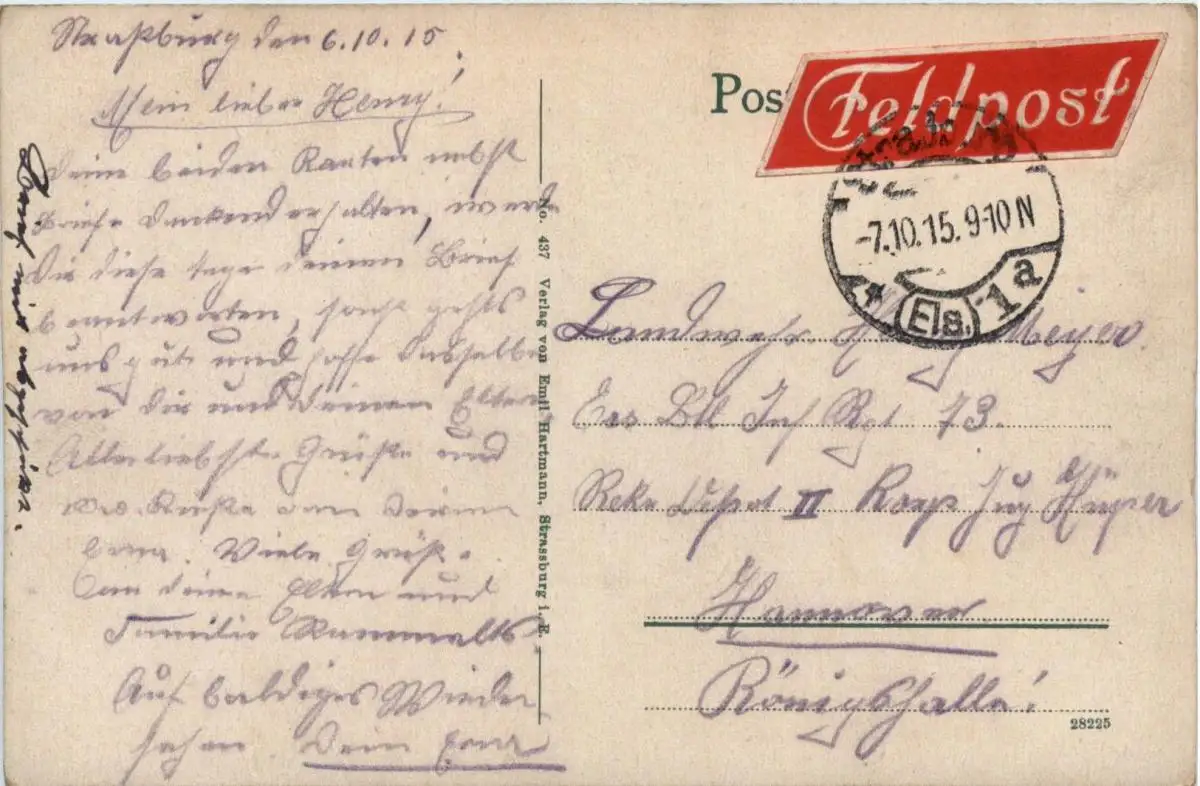 Straßburg den 6.10.15
Mein lieber Henry!
Deine beiden Karten nebst
Briefe dankend erhalten, werde
Dir diese tage deinen Brief
beantworten, sonst gehts
uns gut und hoffe dasselbe
von dir und deinen Eltern
Allerliebste Grüße und
Küße von deiner
Erna. Viele Grüße
an deine Eltern und
Familie
Auf baldiges Wieder
sehen. Dein Erna
Post
Feldpost
Strassburg
-7.10.15. 9-10 N
* (Els.) 1a
Landwehr H. Meyer
Ers Btl Inf Rgt 73.
Rekr Depot II Korp
Hannover
Königshalle!
28225
No. 437 Verlag von Emil Hartmann, Strassburg i. E.